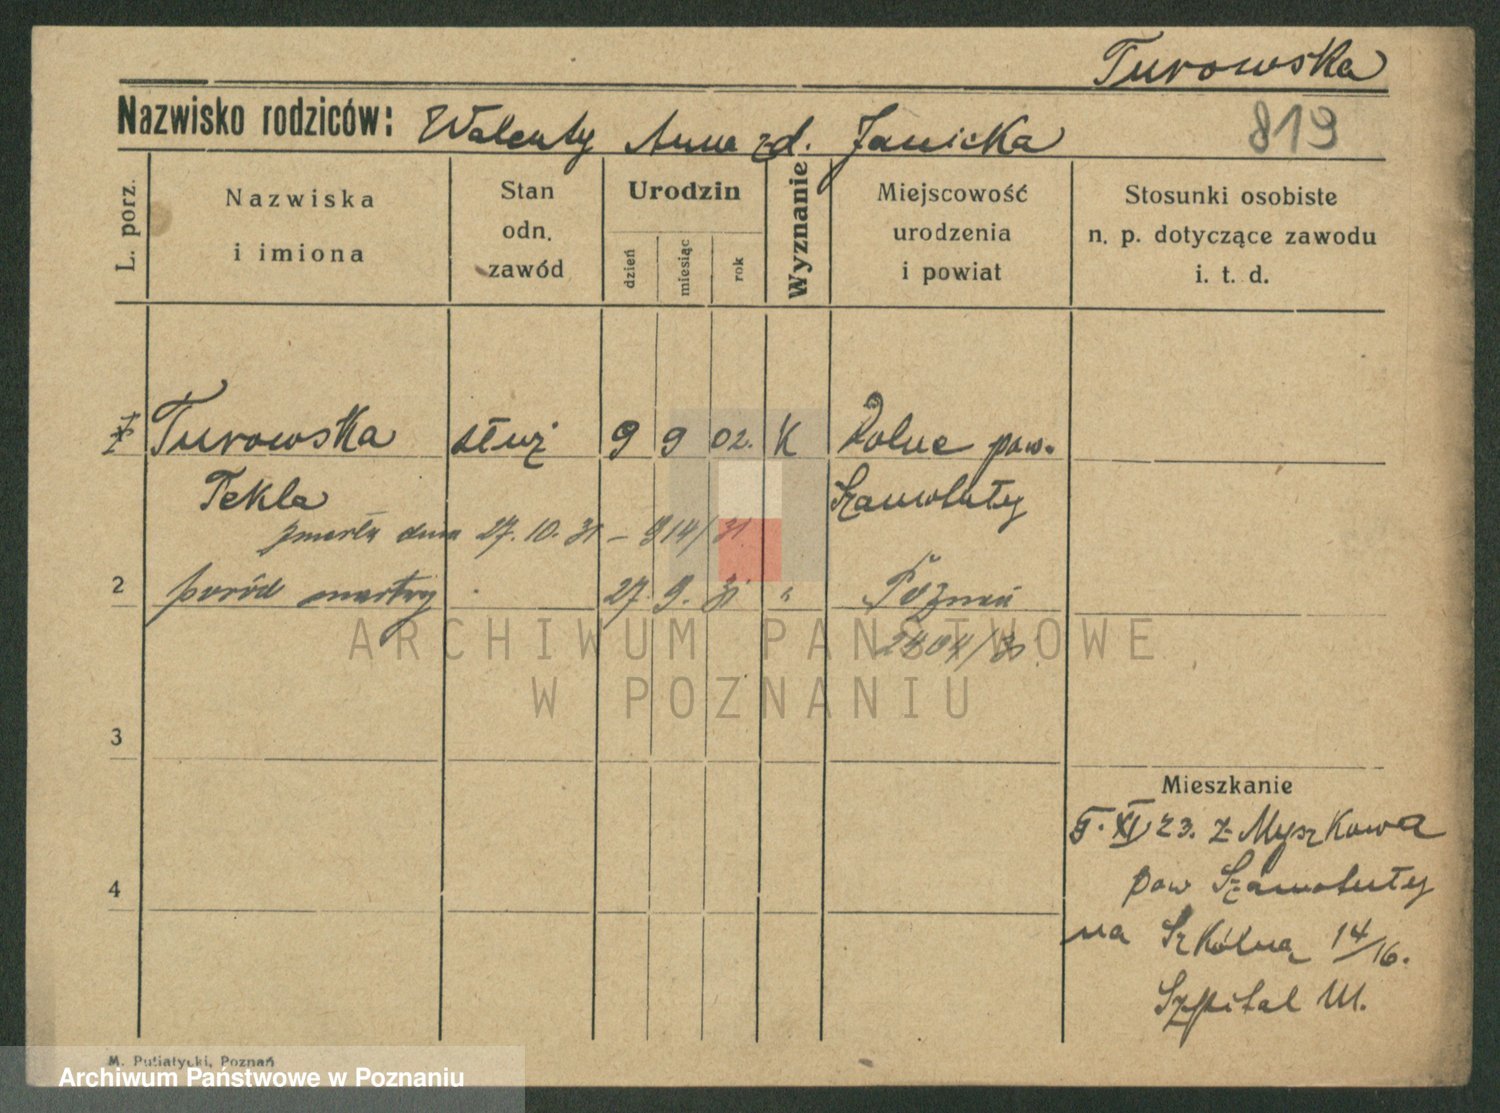 Turowska
Nazwisko rodziców: Walenty Anna zd. Janicka
819
L. porz.
Nazwiska
i imiona
Stan
odn.
zawód
Urodzin
dzień
miesiąc
rok
Wyznanie
Miejscowość
urodzenia
i powiat
Stosunki osobiste
n. p. dotyczące zawodu
i. t. d.
Turowska służ 9 9 02. K Dolne pow.
Tekla Szamotuły
zmarła dnia 27. 10. 31 – 914/31
2 poród martwy 27. 9. 31 " Poznań
2404/31
3
Mieszkanie
XI 23. z Myszkowa
4
pow Szamotuły
na Szkólną 14/16.
Szpital M.
M. Putiatycki, Poznań
ARCHIWUM PAŃSTWOWE
W POZNANIU
Archiwum Państwowe w Poznaniu